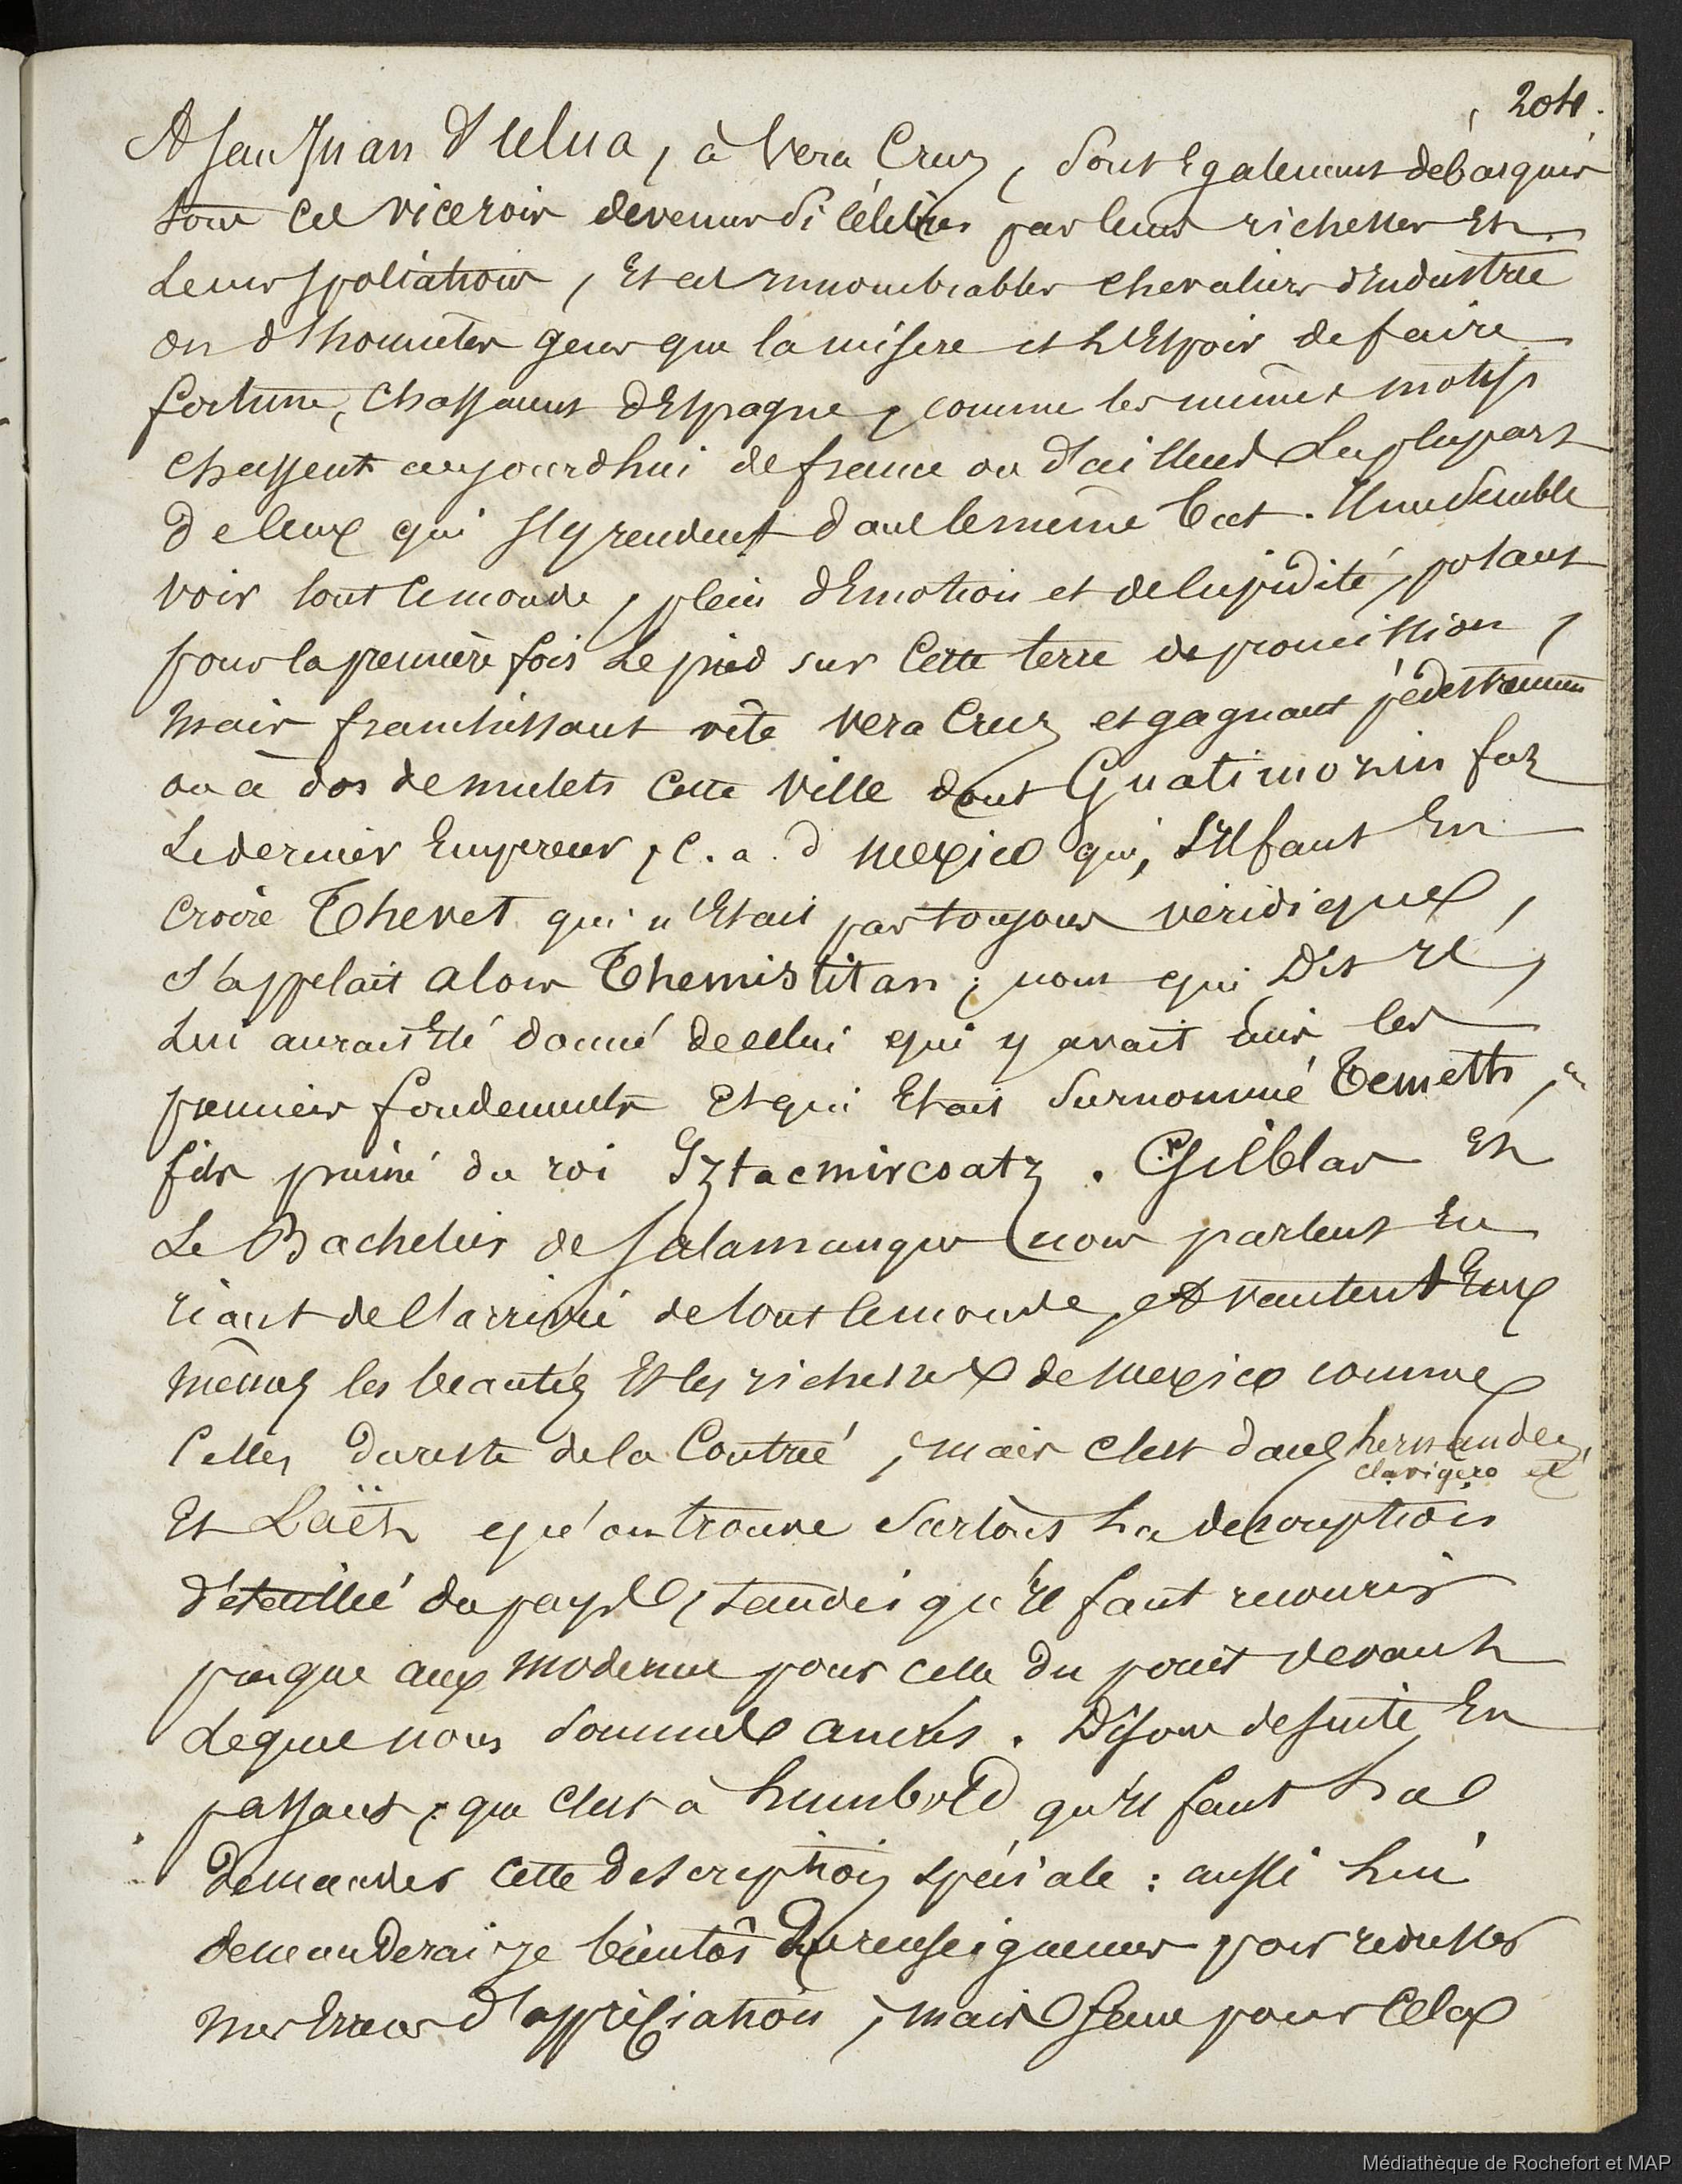 204.
A San Juan d'Ulua, à Vera Cruz, sont également débarqués
tous ces vicerois devenus si célèbres par leurs richesses et
leurs spoliations, et ces innombrables chevaliers d'industrie
ou d'honnêtes gens que la misère et l'espoir de faire
fortune, chassaient d'Espagne, comme les mêmes motifs
chassent aujourdhui de france ou d'ailleurs la plupart
de ceux qui s'y rendent dans le même but. Il me semble
voir tout le monde, plein d'émotion et de cupidité, posant
pour la première fois le pied sur cette terre de promission,
mais franchissant vite Vera Cruz et gagnant pédestrement
ou à dos de mulets cette ville dont Guatimozin fut
le dernier Empereur, c. a. d Mexico qui, s'il faut en
croire Thevet qui n'était pas toujours véridique,
s'appelait alors Themistitan; nom qui dit il,
lui aurait été donné de celui qui y avait mis les
premiers fondements et qui était surnommé Temetth,
fils puiné du roi Iztacmircoatz. Gilblas et
Le Bachelier de Salamanque nous parlent en
riant de l'arrivée de tout le monde, et vantent eux
mêmes les beautés et les richesses de Mexico comme
celles du reste de la Contrée, mais c'est dans hernandez,
clavigero et
et Laët qu'on trouve surtout la description
détaillée du pays, tandis qu'il faut recourir
presque aux modernes pour celle du point devant
lequel nous sommes ancrés. Disons de suite, en
passant, que c'est à humbold qu'il faut la
demander cette description spéciale : aussi lui
demanderai-je bientôt des renseignemens pour redresser
mes erreurs d'appréciation, mais sans pour cela